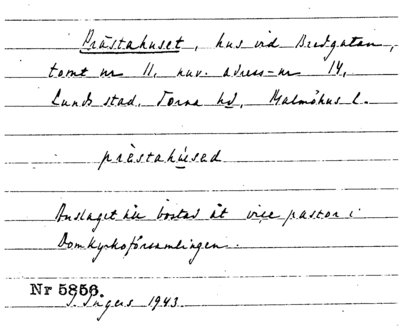 Prästahuset, hus vid Bredgatan,
tomt nr 11, nuv. adress-nr 14,
Lunds stad, Torna hd, Malmöhus l.
prèstahúsed
Anslaget till bostad åt vice pastor i
Domkyrkoförsamlingen.
Nr 5856
I. Ingers 1943.